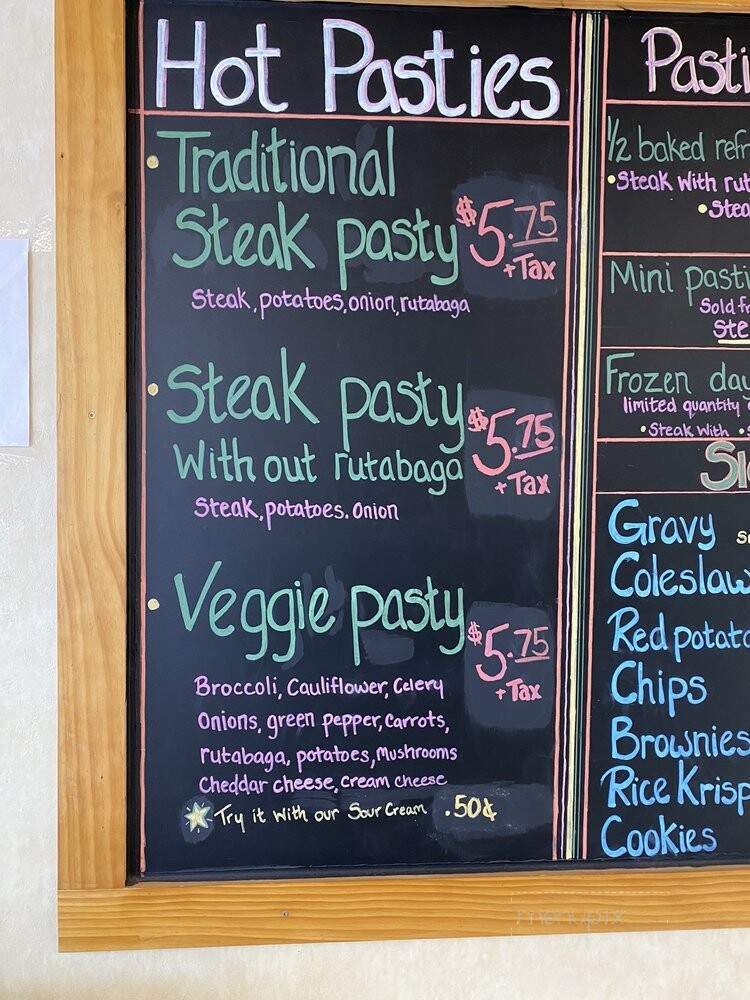 Hot Pasties
Traditional
Steak pasty
$5.75
+Tax
Steak, potatoes, onion, rutabaga
Steak pasty
$5.75
With out rutabaga
+Tax
Steak, potatoes. Onion
Veggie pasty
$5.75
+Tax
Broccoli, Cauliflower, Celery
Onions, green pepper, Carrots,
rutabaga, potatoes, Mushrooms
Cheddar cheese, cream cheese
Try it with our Sour Cream .50¢
1/2 baked
Steak with
Mini
Sold
Frozen
limited quantity
•Steak With •
Gravy
Coleslaw
Red
Chips
Brownies
Rice
Cookies
menupix